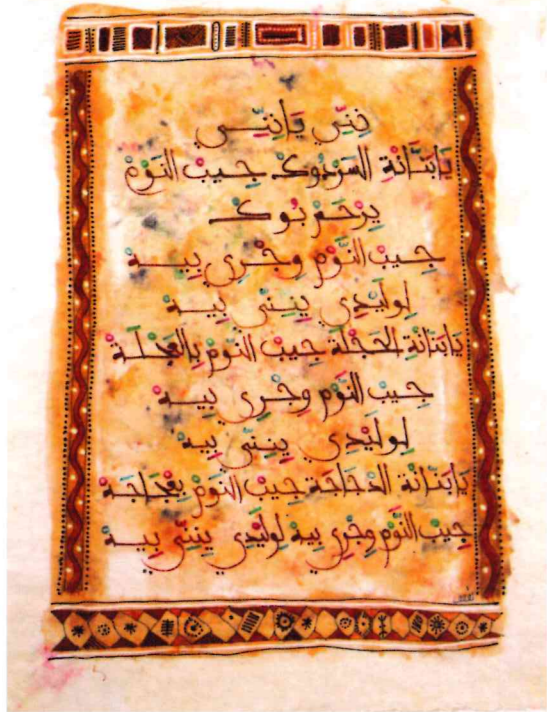 نِنِّي يَا نِنِّي
يَا بَنَّانَةْ السَّرْدُوكْ جِيبْ النَّوْمْ
يِرْحَمْ بُوكْ
جِيبْ النَّوْمْ وِجْرِي بِيهْ
لِوْلِيدِي يِنِنِّي بِيهْ
يَا بَنَّانَةْ الحَجْلَةْ جِيبْ النَّوْمْ بِالعَجْلَةْ
جِيبْ النَّوْمْ وِجْرِي بِيهْ
لِوْلِيدِي يِنِنِّي بِيهْ
يَا بَنَّانَةْ الدْجَاجَةْ جِيبْ النَّوْمْ
جِيبْ النَّوْمْ وِجْرِي بِيهْ لِوْلِيدِي يِنِنِّي بِيهْ